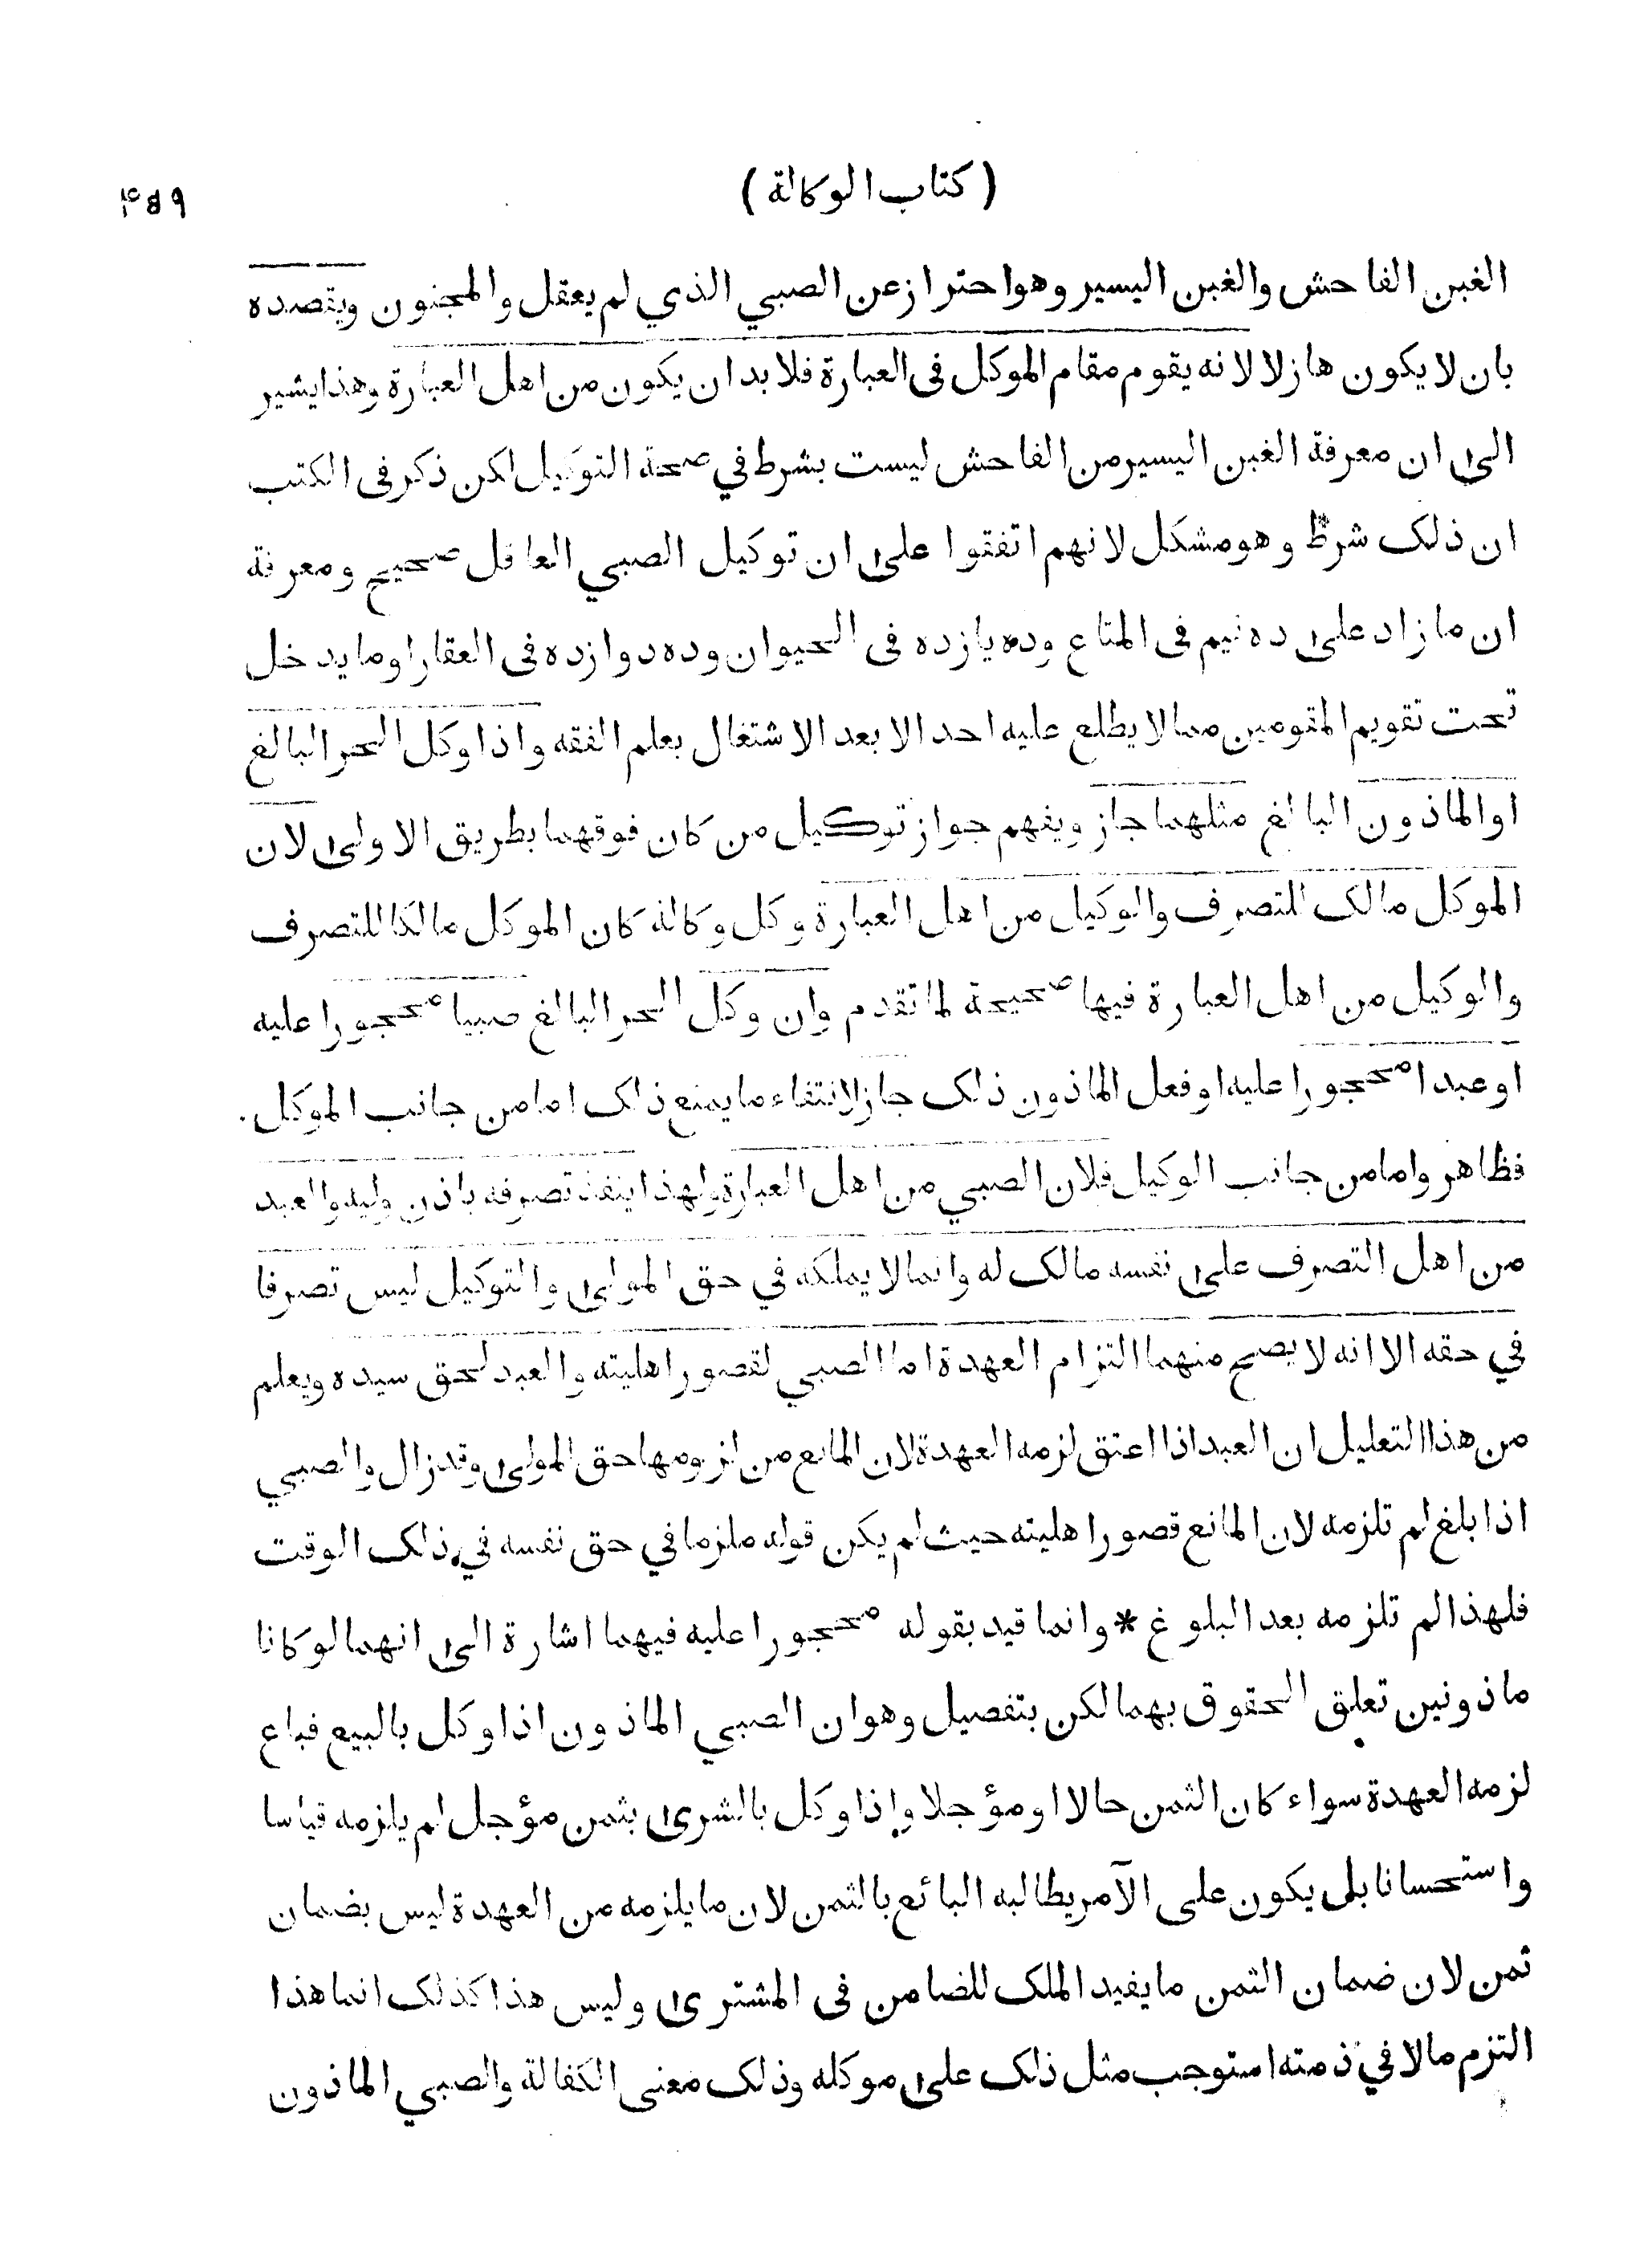 ( كتاب الوكالة )
۴۸۹
الغبن الفاحش والغبن اليسير وهو احتراز عن الصبي الذي لم يعقل والمجنون ويقصده
بان لا يكون هازلا لانه يقوم مقام الموكل فى العبارة فلا بد ان يكون من اهل العبارة وهذا يشير
الى ان معرفة الغبن اليسير من الفاحش ليست بشرط في صحة التوكيل لكن ذكر فى الكتب
ان ذلك شرط وهو مشكل لانهم اتفقوا على ان توكيل الصبي العاقل صحيح ومعرفة
ان ما زاد على ده نيم فى المتاع وده يازده فى الحيوان وده دوازده فى العقار او ما يدخل
تحت تقويم المقومين مما لا يطلع عليه احد الا بعد الاشتغال بعلم الفقه واذا وكل الحر البالغ
او الماذون البالغ مثلهما جاز ويفهم جواز توكيل من كان فوقهما بطريق الاولى لان
الموكل مالك للتصرف والوكيل من اهل العبارة وكل وكالة كان الموكل مالكا للتصرف
والوكيل من اهل العبارة فيها صحيحة لما تقدم وان وكل الحر البالغ صبيا محجورا عليه
او عبدا محجورا عليه او فعل الماذون ذلك جاز لانتفاء ما يمنع ذلك اما من جانب الموكل
فظاهر واما من جانب الوكيل فلان الصبي من اهل العبارة ولهذا ينفذ تصرفه باذن وليه والعبد
من اهل التصرف على نفسه مالك له وانما لا يملكه في حق المولى والتوكيل ليس تصرفا
في حقه الا انه لا يصح منهما التزام العهدة اما الصبي لقصور اهليته والعبد لحق سيده ويعلم
من هذا التعليل ان العبد اذا اعتق لزمه العهدة لان المانع من لزومها حق المولى وقد زال والصبي
اذا بلغ لم تلزمه لان المانع قصور اهليته حيث لم يكن قوله ملزما في حق نفسه في ذلك الوقت
فلهذا لم تلزمه بعد البلوغ * وانما قيد بقوله محجورا عليه فيهما اشارة الى انهما لو كانا
ماذونين تعلق الحقوق بهما لكن بتفصيل وهو ان الصبي الماذون اذا وكل بالبيع فباع
لزمه العهدة سواء كان الثمن حالا او مؤجلا وإذا وكل بالشرى بثمن مؤجل لم يلزمه قياسا
واستحسانا بلى يكون على الآمر يطالبه البائع بالثمن لان ما يلزمه من العهدة ليس بضمان
ثمن لان ضمان الثمن ما يفيد الملك للضامن فى المشترى وليس هذا كذلك انما هذا
التزم مالا في ذمته استوجب مثل ذلك على موكله وذلك معنى الكفالة والصبي الماذون